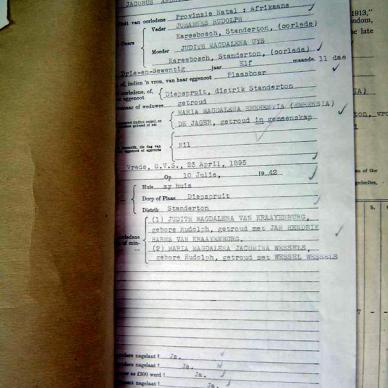 JACOBUS
van oorledene Provinsie Natal : Afrikaans
Vader JOHANNES RUDOLPH
Ouers Kareebosch, Standerton, (oorlede)
Moeder JUDITH MAGDALENA UYS
Kareebosch, Standerton, (oorlede)
Drie-en-Sewentig jaar Elf maande 11 dae
of, indien 'n vrou, van haar eggenoot Plaasboer
Diepspruit, distrik Standerton
getroud
MARIA MAGDALENA
DE JAGER, getroud in gemeenskap
Nil
Vrede, O.V.S., 23 April, 1895
Op 10 Julie, 1942
Huis my huis
Dorp of Plaas Diepspruit
Distrik Standerton
(1) JUDITH MAGDALENA VAN KRAAYENBURG,
gebore Rudolph, getroud met JAN HENDRIK
VAN KRAAYENBURG.
(2) MARIA MAGDALENA JACOMINA WESSELS,
gebore Rudolph, getroud met WESSEL WESSELS
nagelaat ? Ja.
nagelaat ? Ja.
as £300 werd ? Ja.
nagelaat ? Ja.
1913,"
the late
of the